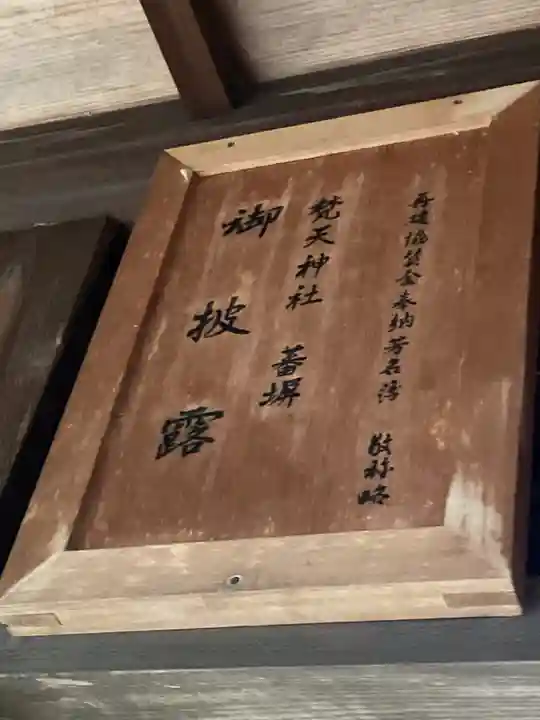 再建協賛金奉納芳名簿 敬称略
梵天神社 蕃塀
御披露